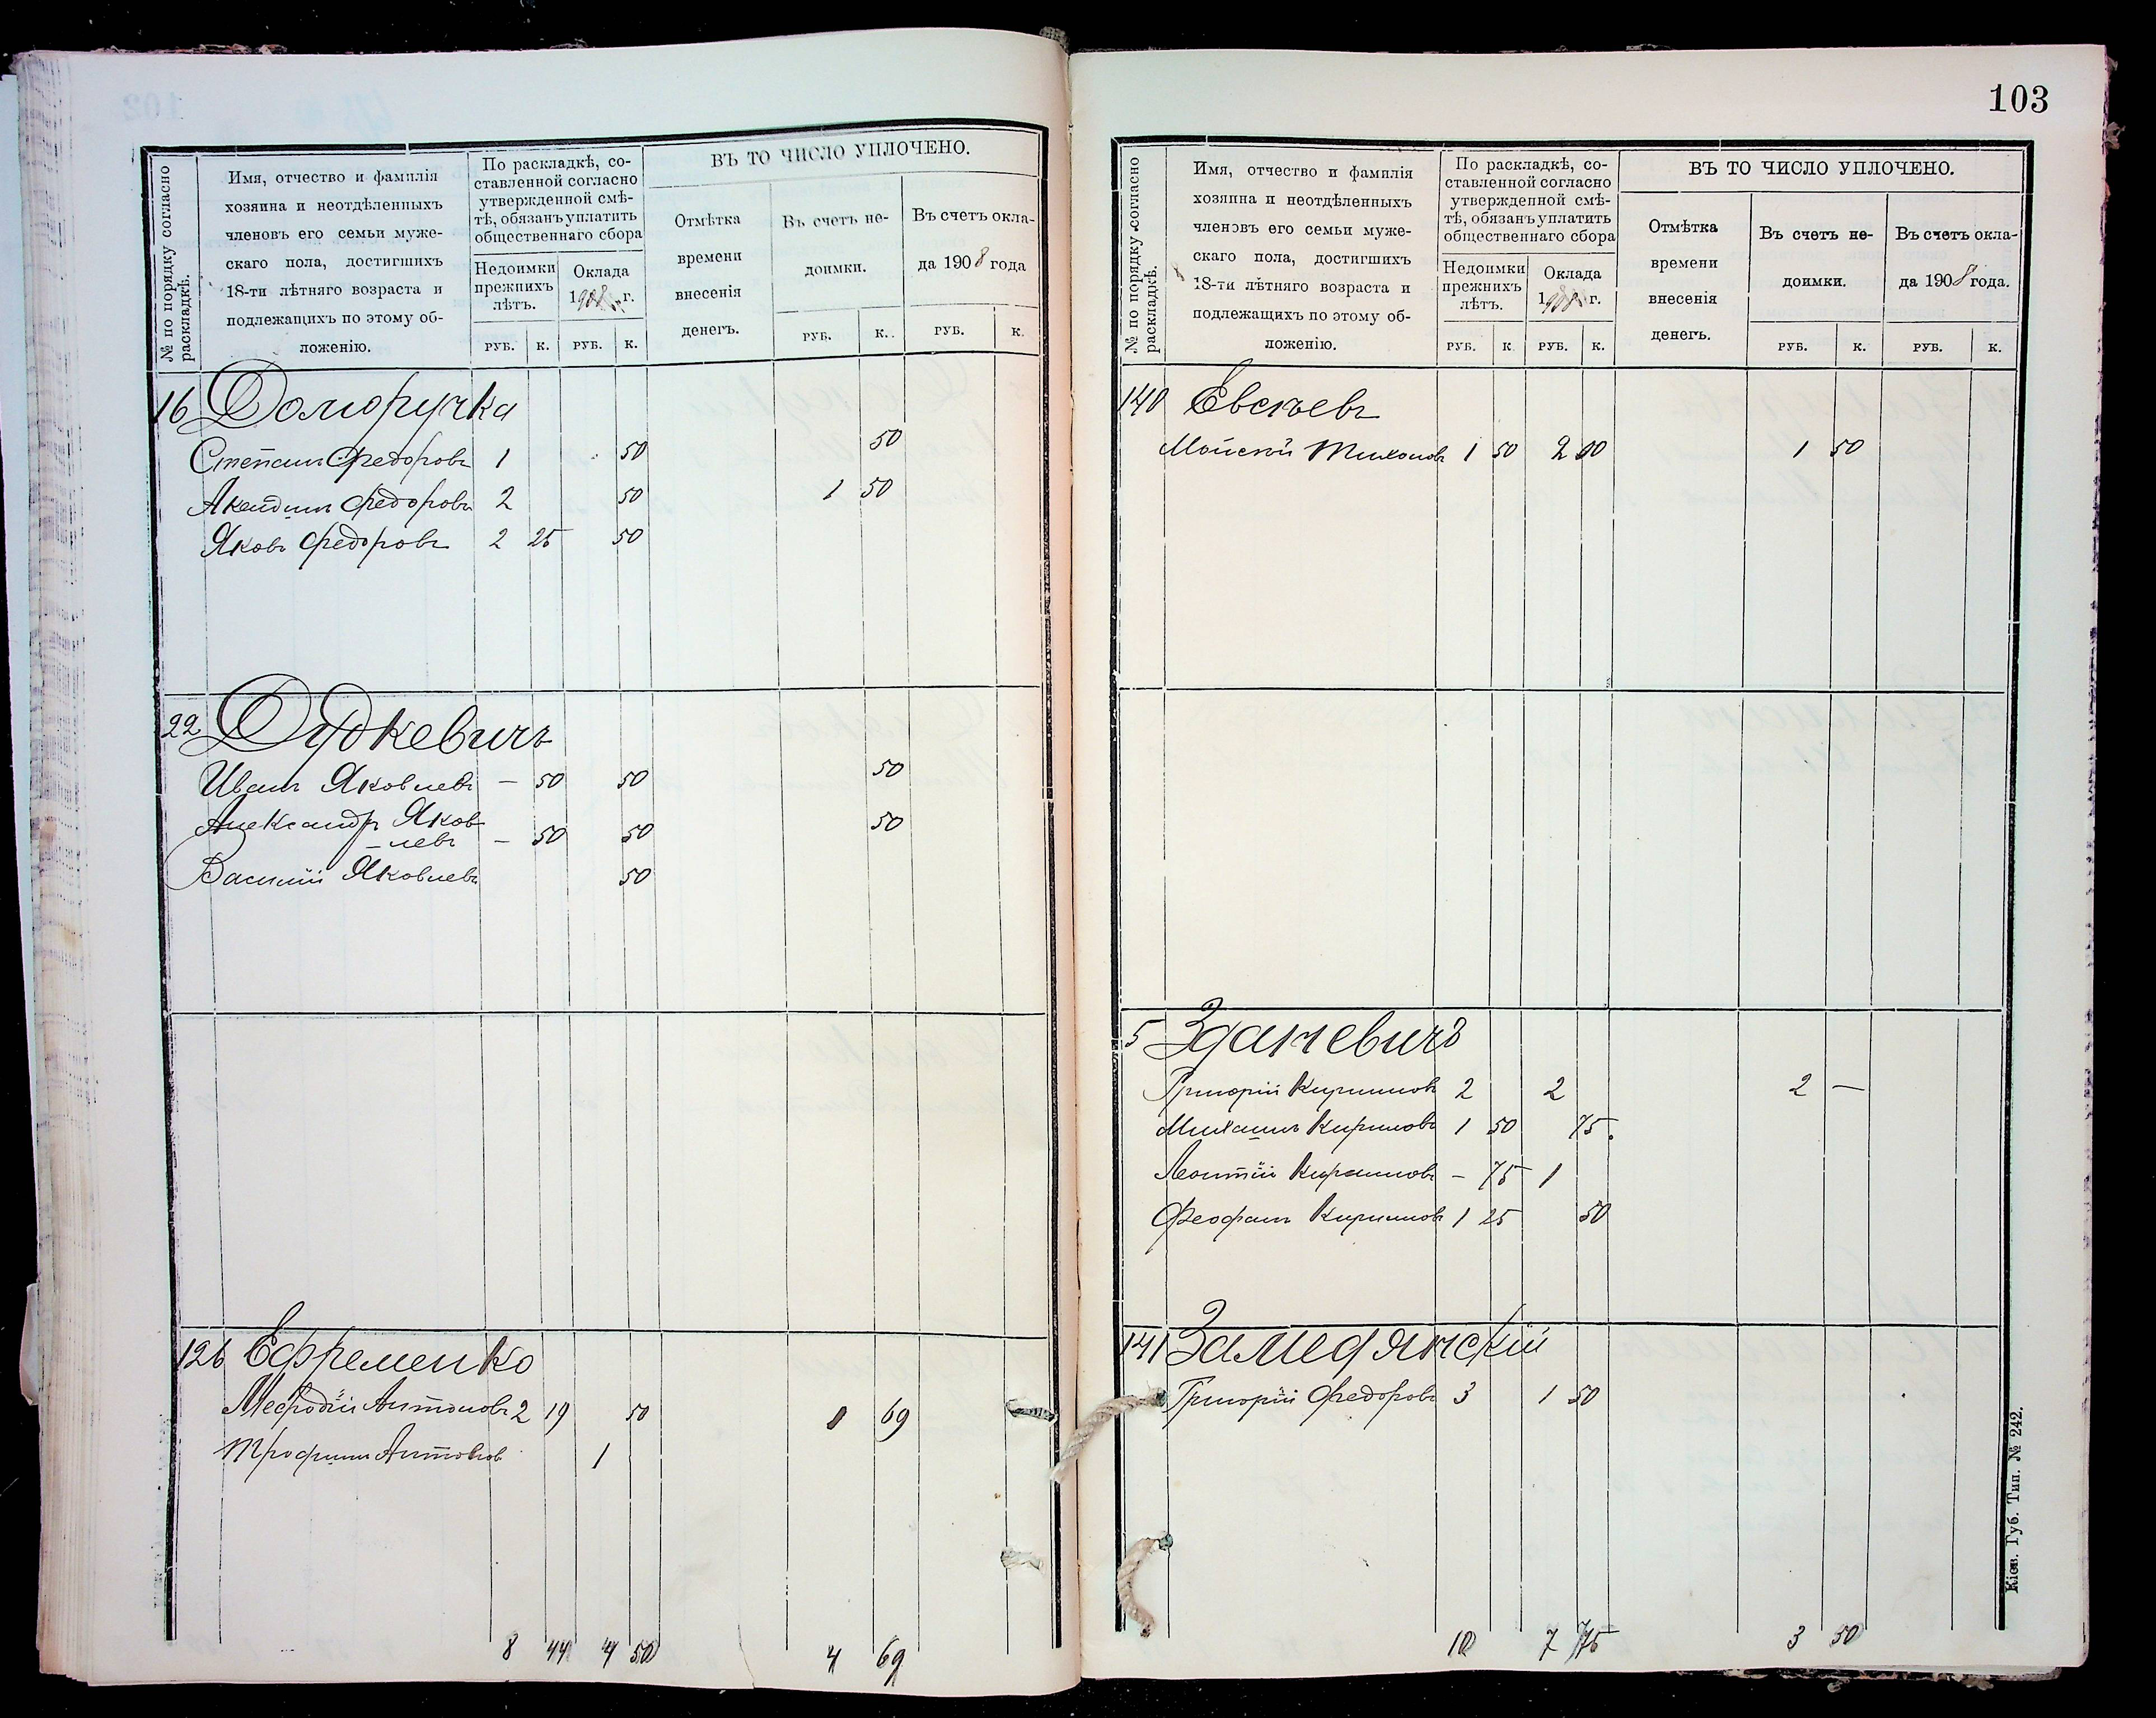 № по порядку согласно
раскладкѣ.
Имя, отчество и фамилія
хозяина и неотдѣленныхъ
членовъ его семьи муже-
скаго пола, достигшихъ
18-ти лѣтняго возраста и
подлежащихъ по этому об-
ложенію.
По раскладкѣ, со-
ставленной согласно
утвержденной смѣ-
тѣ, обязанъ уплатить
общественнаго сбора
Недоимки
прежнихъ
лѣтъ.
Оклада
1908 г.
ВЪ ТО ЧИСЛО УПЛОЧЕНО.
Отмѣтка
времени
внесенія
денегъ.
Въ счетъ не-
доимки.
Въ счетъ окла-
да 1908 года
РУБ. К. РУБ. К. РУБ. К. РУБ. К.
16 Долгоручка
Степанъ Федоровъ 1 50 50
Федоровъ 2 50 1 50
Яковъ Федоровъ 2 25 50
22 Дудкевичъ
Иванъ Яковлевъ — 50 50 50
Александръ Яков-
левъ — 50 50 50
Василій Яковлевъ 50
126 Ефременко
Мефодій Антоновъ 2 19 50 1 69
Трофимъ Антоновъ 1
8 44 4 50 4 69
103
№ по порядку согласно
раскладкѣ.
Имя, отчество и фамилія
хозяина и неотдѣленныхъ
членовъ его семьи муже-
скаго пола, достигшихъ
18-ти лѣтняго возраста и
подлежащихъ по этому об-
ложенію.
По раскладкѣ, со-
ставленной согласно
утвержденной смѣ-
тѣ, обязанъ уплатить
общественнаго сбора
Недоимки
прежнихъ
лѣтъ.
Оклада
1908 г.
ВЪ ТО ЧИСЛО УПЛОЧЕНО.
Отмѣтка
времени
внесенія
денегъ.
Въ счетъ не-
доимки.
Въ счетъ окла-
да 1908 года.
РУБ. К. РУБ. К. РУБ. К. РУБ. К.
140 Евсѣевъ
Мойсей Тихоновъ 1 50 2 00 1 50
5 Зданевичъ
Григорій Кириловъ 2 2 2 —
Михаилъ Кириловъ 1 50 75
Леонтій Кириловъ — 75 1
Феофанъ Кириловъ 1 25 50
141 Замедянскій
Григорій Федоровъ 3 1 50
10 7 75 3 50
Кіев. Губ. Тип. № 242.